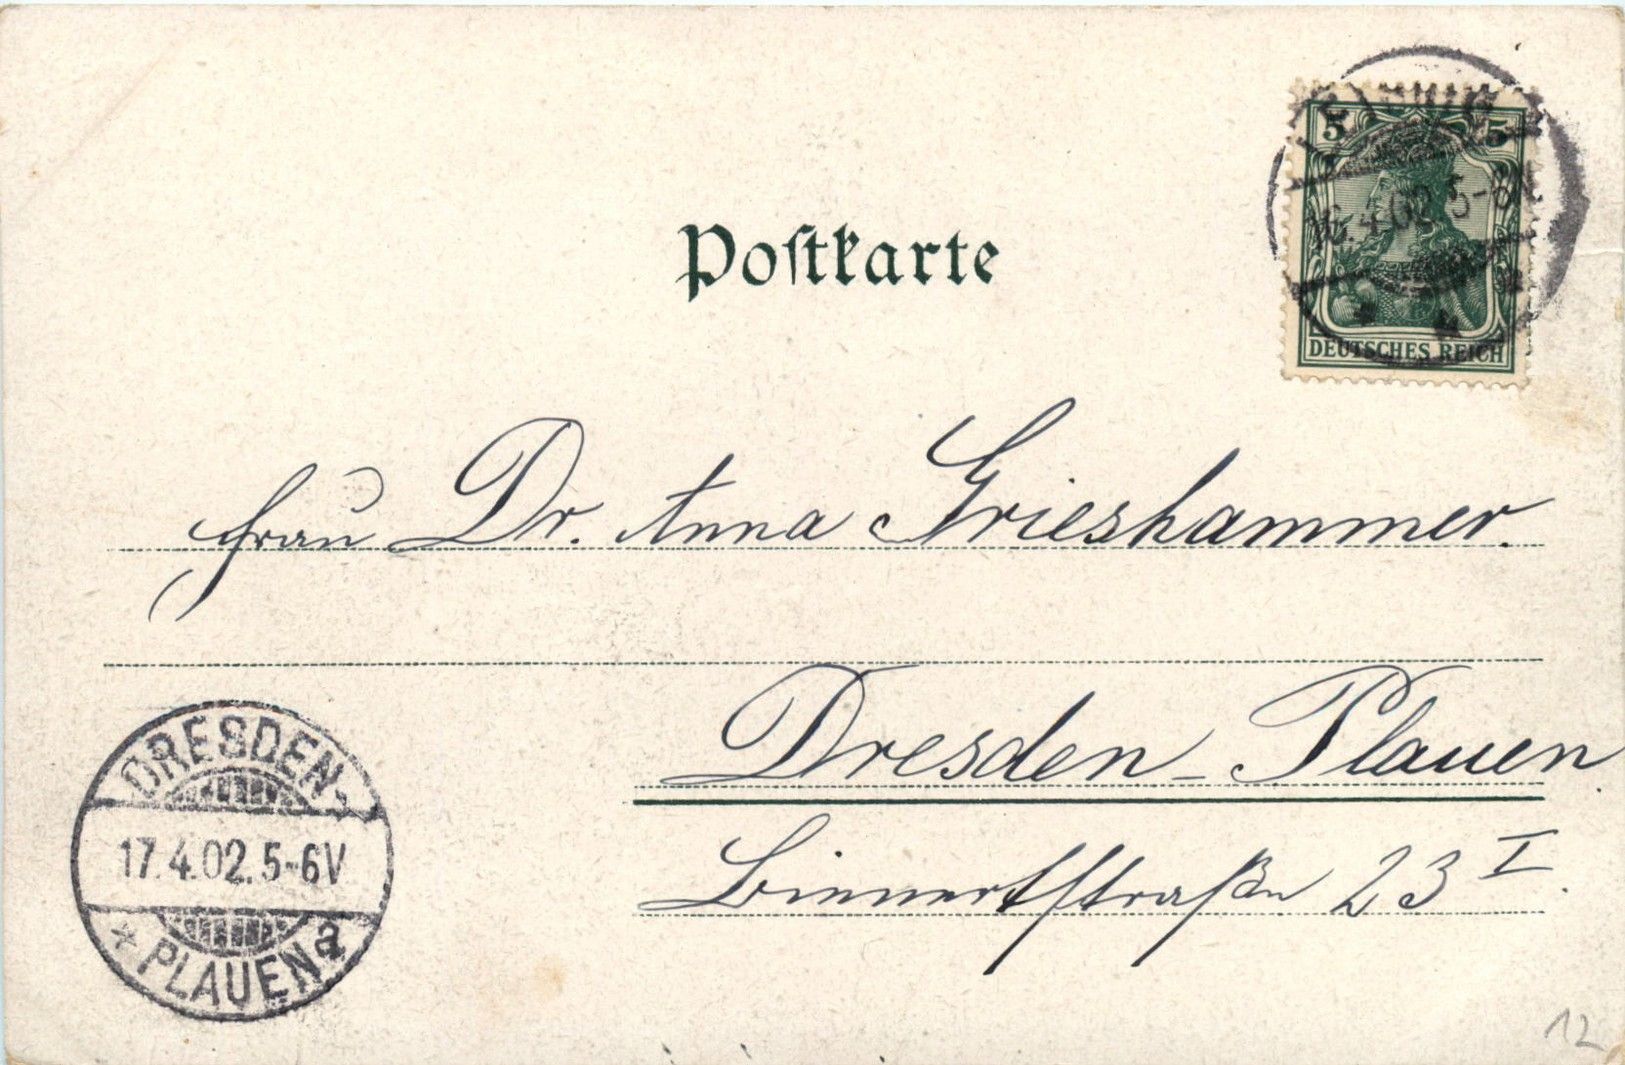 Postkarte
LEIPZIG
5 5
16.4.02 5-6
DEUTSCHES REICH
Frau Dr. Anna Grieshammer.
Dresden-Plauen
Bienertstraße 23 I.
DRESDEN-
17.4.02.5-6V
* PLAUEN a
12